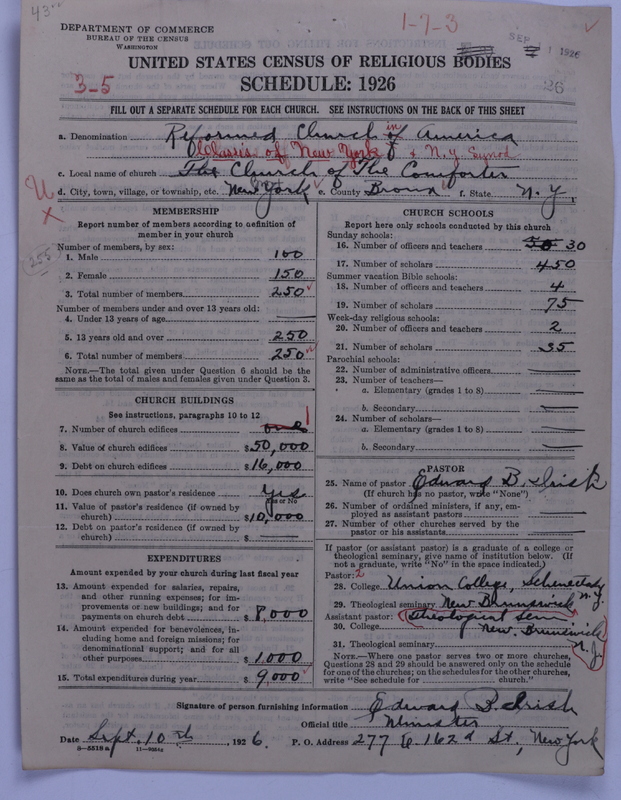 43
1-7-3
DEPARTMENT OF COMMERCE
BUREAU OF THE CENSUS
WASHINGTON
SEP 1 1926
UNITED STATES CENSUS OF RELIGIOUS BODIES
SCHEDULE: 1926
3-5
26
FILL OUT A SEPARATE SCHEDULE FOR EACH CHURCH. SEE INSTRUCTIONS ON THE BACK OF THIS SHEET
a. Denomination Reformed Church in America
Classis of New York & N.Y Synod
c. Local name of church The Church of The Comforter
d. City, town, village, or township, etc. New York e. County Bronx f. State N.Y.
MEMBERSHIP
Report number of members according to definition of
member in your church
255
Number of members, by sex:
1. Male 100
2. Female 150
3. Total number of members 250
Number of members under and over 13 years old:
4. Under 13 years of age
5. 13 years old and over 250
6. Total number of members 250
NOTE.—The total given under Question 6 should be the
same as the total of males and females given under Question 3.
CHURCH BUILDINGS
See instructions, paragraphs 10 to 12
7. Number of church edifices one 1
8. Value of church edifices $50,000
9. Debt on church edifices $16,000
10. Does church own pastor's residence Yes
Yes or No
11. Value of pastor's residence (if owned by
church) $10,000
12. Debt on pastor's residence (if owned by
church) $
EXPENDITURES
Amount expended by your church during last fiscal year
13. Amount expended for salaries, repairs,
and other running expenses; for im-
provements or new buildings; and for
payments on church debt $8,000
14. Amount expended for benevolences, in-
cluding home and foreign missions; for
denominational support; and for all
other purposes $1,000
15. Total expenditures during year $9,000
CHURCH SCHOOLS
Report here only schools conducted by this church
Sunday schools:
16. Number of officers and teachers 30
17. Number of scholars 450
Summer vacation Bible schools:
18. Number of officers and teachers 4
19. Number of scholars 75
Week-day religious schools:
20. Number of officers and teachers 2
21. Number of scholars 35
Parochial schools:
22. Number of administrative officers
23. Number of teachers—
a. Elementary (grades 1 to 8)
b. Secondary
24. Number of scholars—
a. Elementary (grades 1 to 8)
b. Secondary
PASTOR
25. Name of pastor Edward B. Irish
(If church has no pastor, write "None")
26. Number of ordained ministers, if any, em-
ployed as assistant pastors
27. Number of other churches served by the
pastor or his assistants
If pastor (or assistant pastor) is a graduate of a college or
theological seminary, give name of institution below. (If
not a graduate, write "No" in the space indicated.)
Pastor: 2
28. College Union College, Schenectady N.Y.
29. Theological seminary New Brunswick
Assistant pastor: Theological Sem
30. College New Brunswick
31. Theological seminary N.J.
NOTE.—Where one pastor serves two or more churches,
Questions 28 and 29 should be answered only on the schedule
for one of the churches; on the schedules for the other churches,
write "See schedule for church."
Signature of person furnishing information Edward B. Irish
Official title Minister
Date Sept. 10th, 1926. P. O. Address 277 E. 162d St., New York
8-5518a